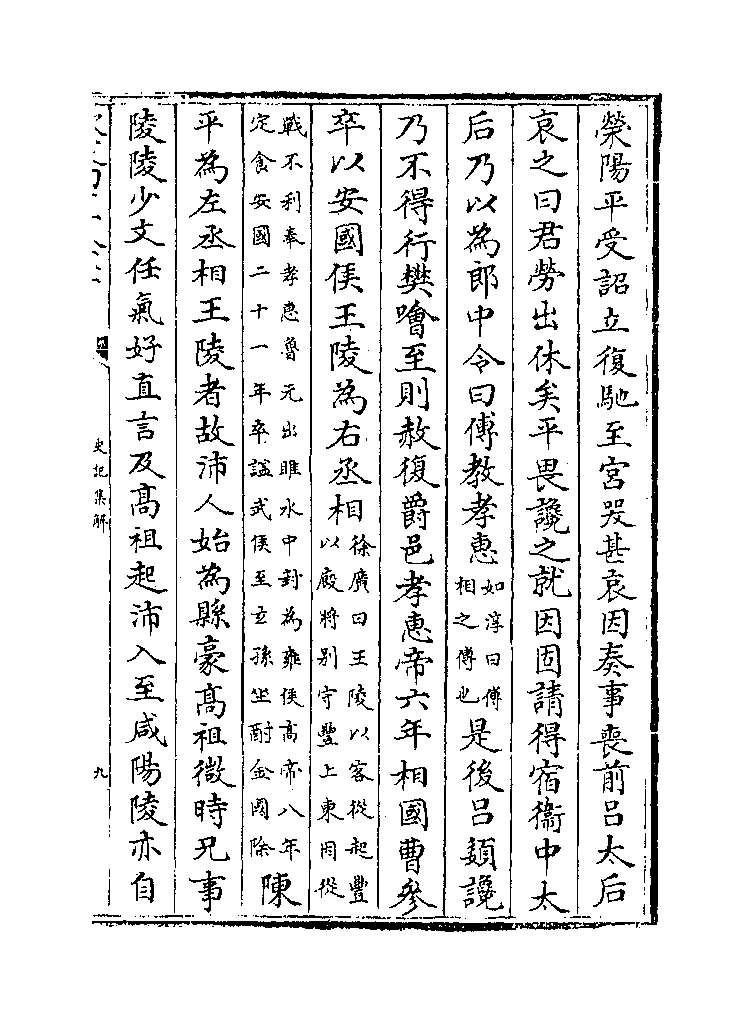 滎陽平受詔立復馳至宮哭甚哀因奏事喪前吕太后
哀之曰君勞出休矣平畏讒之就因固請得宿衞中太
后乃以為郎中令曰傅教孝惠如淳曰傅相之傅也是後吕嬃讒
乃不得行樊噲至則赦復爵邑孝惠帝六年相國曹參
卒以安國侯王陵為右丞相徐廣曰王陵以客從起豐以廄將别守豐上東因從
戰不利奉孝惠魯元出睢水中封為雍侯髙帝八年定食安國二十一年卒諡武侯至玄孫坐酎金國除陳
平為左丞相王陵者故沛人始為縣豪髙祖微時兄事
陵陵少文任氣好直言及髙祖起沛入至咸陽陵亦自
史記集解
九